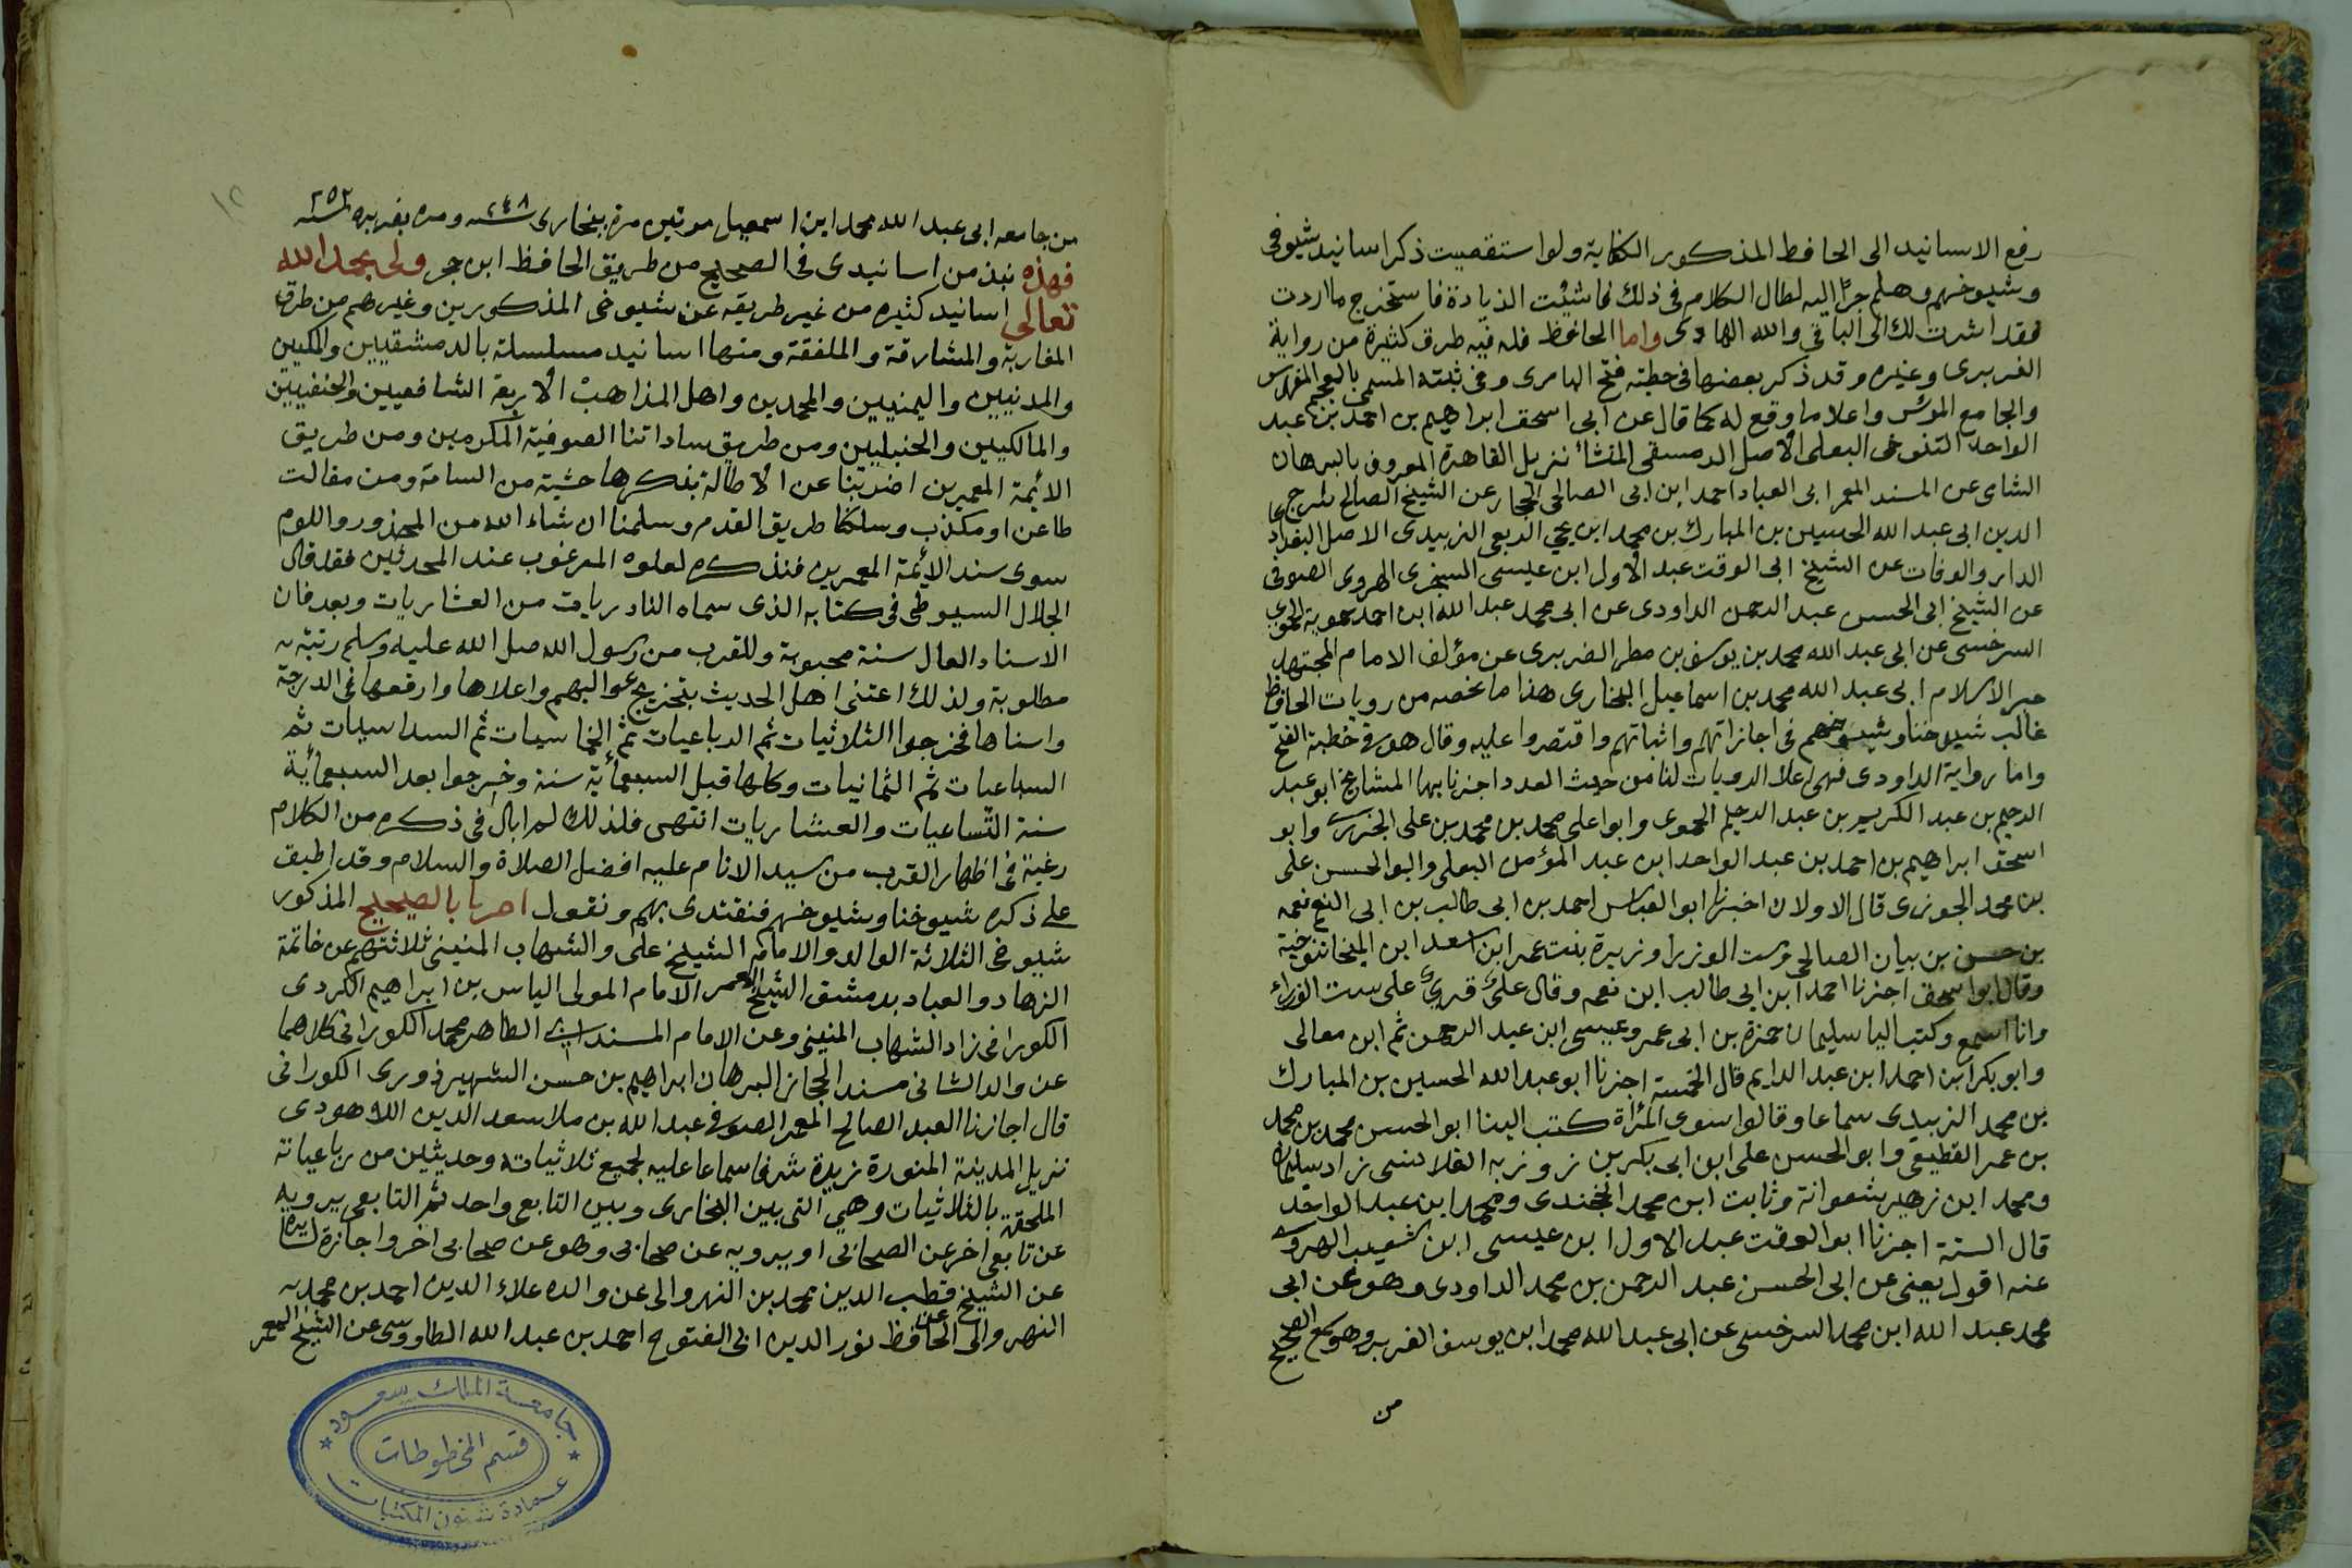 رفع الاسانيد الى الحافظ المذكور الكفاية ولو استقصيت ذكر اسانيد شيوخى
وشيوخهم وهلم جرا اليه لطال الكلام فى ذلك فاشئت الزيادة فاستخرج ما اردت
فقد اشرت لك الى الباقى والله الهادى واما الحافظ فله فيه طرق كثيرة من رواية
الفربرى وغيره وقد ذكر بعضها فى خطبته فتح البارى وفى ثبته المسمى بالمعجم المفهرس
والجامع المؤسس واعلا ما وقع له كما قال عن ابى اسحق ابراهيم بن احمد بن عبد
الواحد التنوخى البعلى الاصل الدمشقى المنشأ نزيل القاهرة المعروف بالبرهان
الشامى عن المسند المعمر ابى العباد احمد ابن ابى الصالحى الحجار عن الشيخ الصالح سرج
الدين ابى عبد الله الحسين بن المبارك بن محمد ابن يحيى الربعى الزبيدى الاصل البغداد
الدار والوفات عن الشيخ ابى الوقت عبد الاول ابن عيسى السجزى الهروى الصوفى
عن الشيخ ابى الحسن عبد الرحمن الداودى عن ابى محمد عبد الله ابن احمد حموية الحموى
السرخسى عن ابى عبد الله محمد بن يوسف بن مطر الفربرى عن مؤلف الامام المجتهد
حبر الاسلام ابى عبد الله محمد بن اسماعيل البخارى هذا ما لخصه من رويات الحافظ
غالب شيوخنا وشيوخهم فى اجازاتهم واثباتهم واقتصروا عليه وقال هو فى خطبة الفتح
واما رواية الداودى فهى اعلا الرويات لنا من حيث العدد اخبرنا بها المشايخ ابو عبد
الرحيم بن عبد الكريم بن عبد الرحيم الحموى وابو على محمد بن محمد بن على الجزرى وابو
اسحق ابراهيم بن احمد بن عبد الواحد ابن عبد المؤمن البعلى وابو الحسن على
بن محمد الجوزى قال الاولان اخبرنا ابو العباس احمد بن ابى طالب بن ابى النعم نعمه
بن حسن بن بيان الصالحى وست الوزيرا وزيرة بنت عمر ابن اسعد ابن المنجا تنوخية
وقال ابو اسحق اخبرنا احمد ابن ابى طالب ابن نعم وقال على قرى على ست الوزراء
وانا اسمع وكتب اليا سليمان حمزة بن ابى عمر وعيسى ابن عبد الرحمن ثم ابن معالى
وابو بكر ابن احمد ابن عبد الدايم قال الخمسة اخبرنا ابو عبد الله الحسين بن المبارك
بن محمد الزبيدى سماعا وقالوا سوى المرأة كتب الينا ابو الحسن محمد بن محمد
بن عمر القطيعى وابو الحسن على ابن ابى بكر بن زوزبه القلانسى زاد سليمان
ومحمد ابن زهير شعوانة وثابت ابن محمد الخجندى ومحمد ابن عبد الواحد
قال الستة اخبرنا ابو الوقت عبد الاول ابن عيسى ابن شعيب الهروى
عنه اقول يعنى عن ابى الحسن عبد الرحمن بن محمد الداودى وهو عن ابى
محمد عبد الله ابن محمد السرخسى عن ابى عبد الله محمد ابن يوسف الفربر وهو سمع الصحيح
من
١٢
من جامعه ابى عبد الله محمد ابن اسمعيل مرتين مرة ببخارى سنه ٢٤٨ ومره بفربره سنه ٢٥٢
فهذه نبذ من اسانيدى فى الصحيح من طريق الحافظ ابن حجر ولى بحمد الله
تعالى اسانيد كثيره من غير طريقه عن شيوخى المذكورين وغيرهم من طرق
المغاربة والمشارقة والملفقة ومنها اسانيد مسلسلة بالدمشقيين والمكيين
والمدنيين واليمنيين والمحمدين واهل المذاهب الاربعة الشافعيين والحنفيين
والمالكيين والحنبليين ومن طريق ساداتنا الصوفية المكرمين ومن طريق
الائمة المعمرين اضربنا عن الاطالة بذكرها خشية من السامة ومن مقالت
طاعن او مكذب وسلكنا طريق القدم وسلمنا ان شاء الله من المحذور واللوم
سوى سند الائمة المعمرين فنذكره لعلوه المرغوب عند المحدثين فقد قال
الجلال السيوطى فى كتابه الذى سماه النادريات من العشاريات وبعد فان
الاسناد العال سنة محبوبة وللقرب من رسول الله صلى الله عليه وسلم رتبة
مطلوبة ولذلك اعتنى اهل الحديث بتخريج عواليهم واعلاها وارفعها فى الدرجة
واسناها فخرجوا الثلاثيات ثم الرباعيات ثم الخماسيات ثم السداسيات ثم
السباعيات ثم الثمانيات وكلها قبل السبعمأية سنة وخرجوا بعد السبعمأية
سنة التساعيات والعشاريات انتهى فلذلك لم ابال فى ذكره من الكلام
رغبة فى اظهار القرب من سيد الانام عليه افضل الصلاة والسلام وقد اطبق
على ذكره شيوخنا وشيوخهم فنقتدى بهم ونقول اخبرنا بالصحيح المذكور
شيوخى الثلاثة الوالد والامام الشيخ على والشهاب المنينى ثلاثتهم عن خاتمة
الزهاد والعباد بدمشق الشيخ المعمر الامام المولى الياس بن ابراهيم الكردى
الكورانى زاد الشهاب المنينى وعن الامام المسند ابى الطاهر محمد الكورانى كلاهما
عن والد الثانى مسند الحجاز البرهان ابراهيم بن حسن الشهرزورى الكورانى
قال اجازنا العبد الصالح المعمر الصوفى عبد الله بن ملا سعد الدين اللاهودى
نزيل المدينة المنورة زيدة شرفا سماعا عليه لجميع ثلاثياته وحديثين من رباعياته
الملحقة بالثلاثيات وهى التى بين البخارى وبين التابعى واحد ثم التابعى يرويه
عن تابعى اخر عن الصحابى او يرويه عن صحابى وهو عن صحابى اخر واجازة لسايره
عن الشيخ قطب الدين محمد بن النهروالى عن والده علاء الدين احمد بن محمد
النهروالى عن الحافظ نور الدين ابى الفتوح احمد بن عبد الله الطاووسى عن الشيخ المعمر
جامعة الملك سعود
قسم المخطوطات
عمادة شئون المكتبات